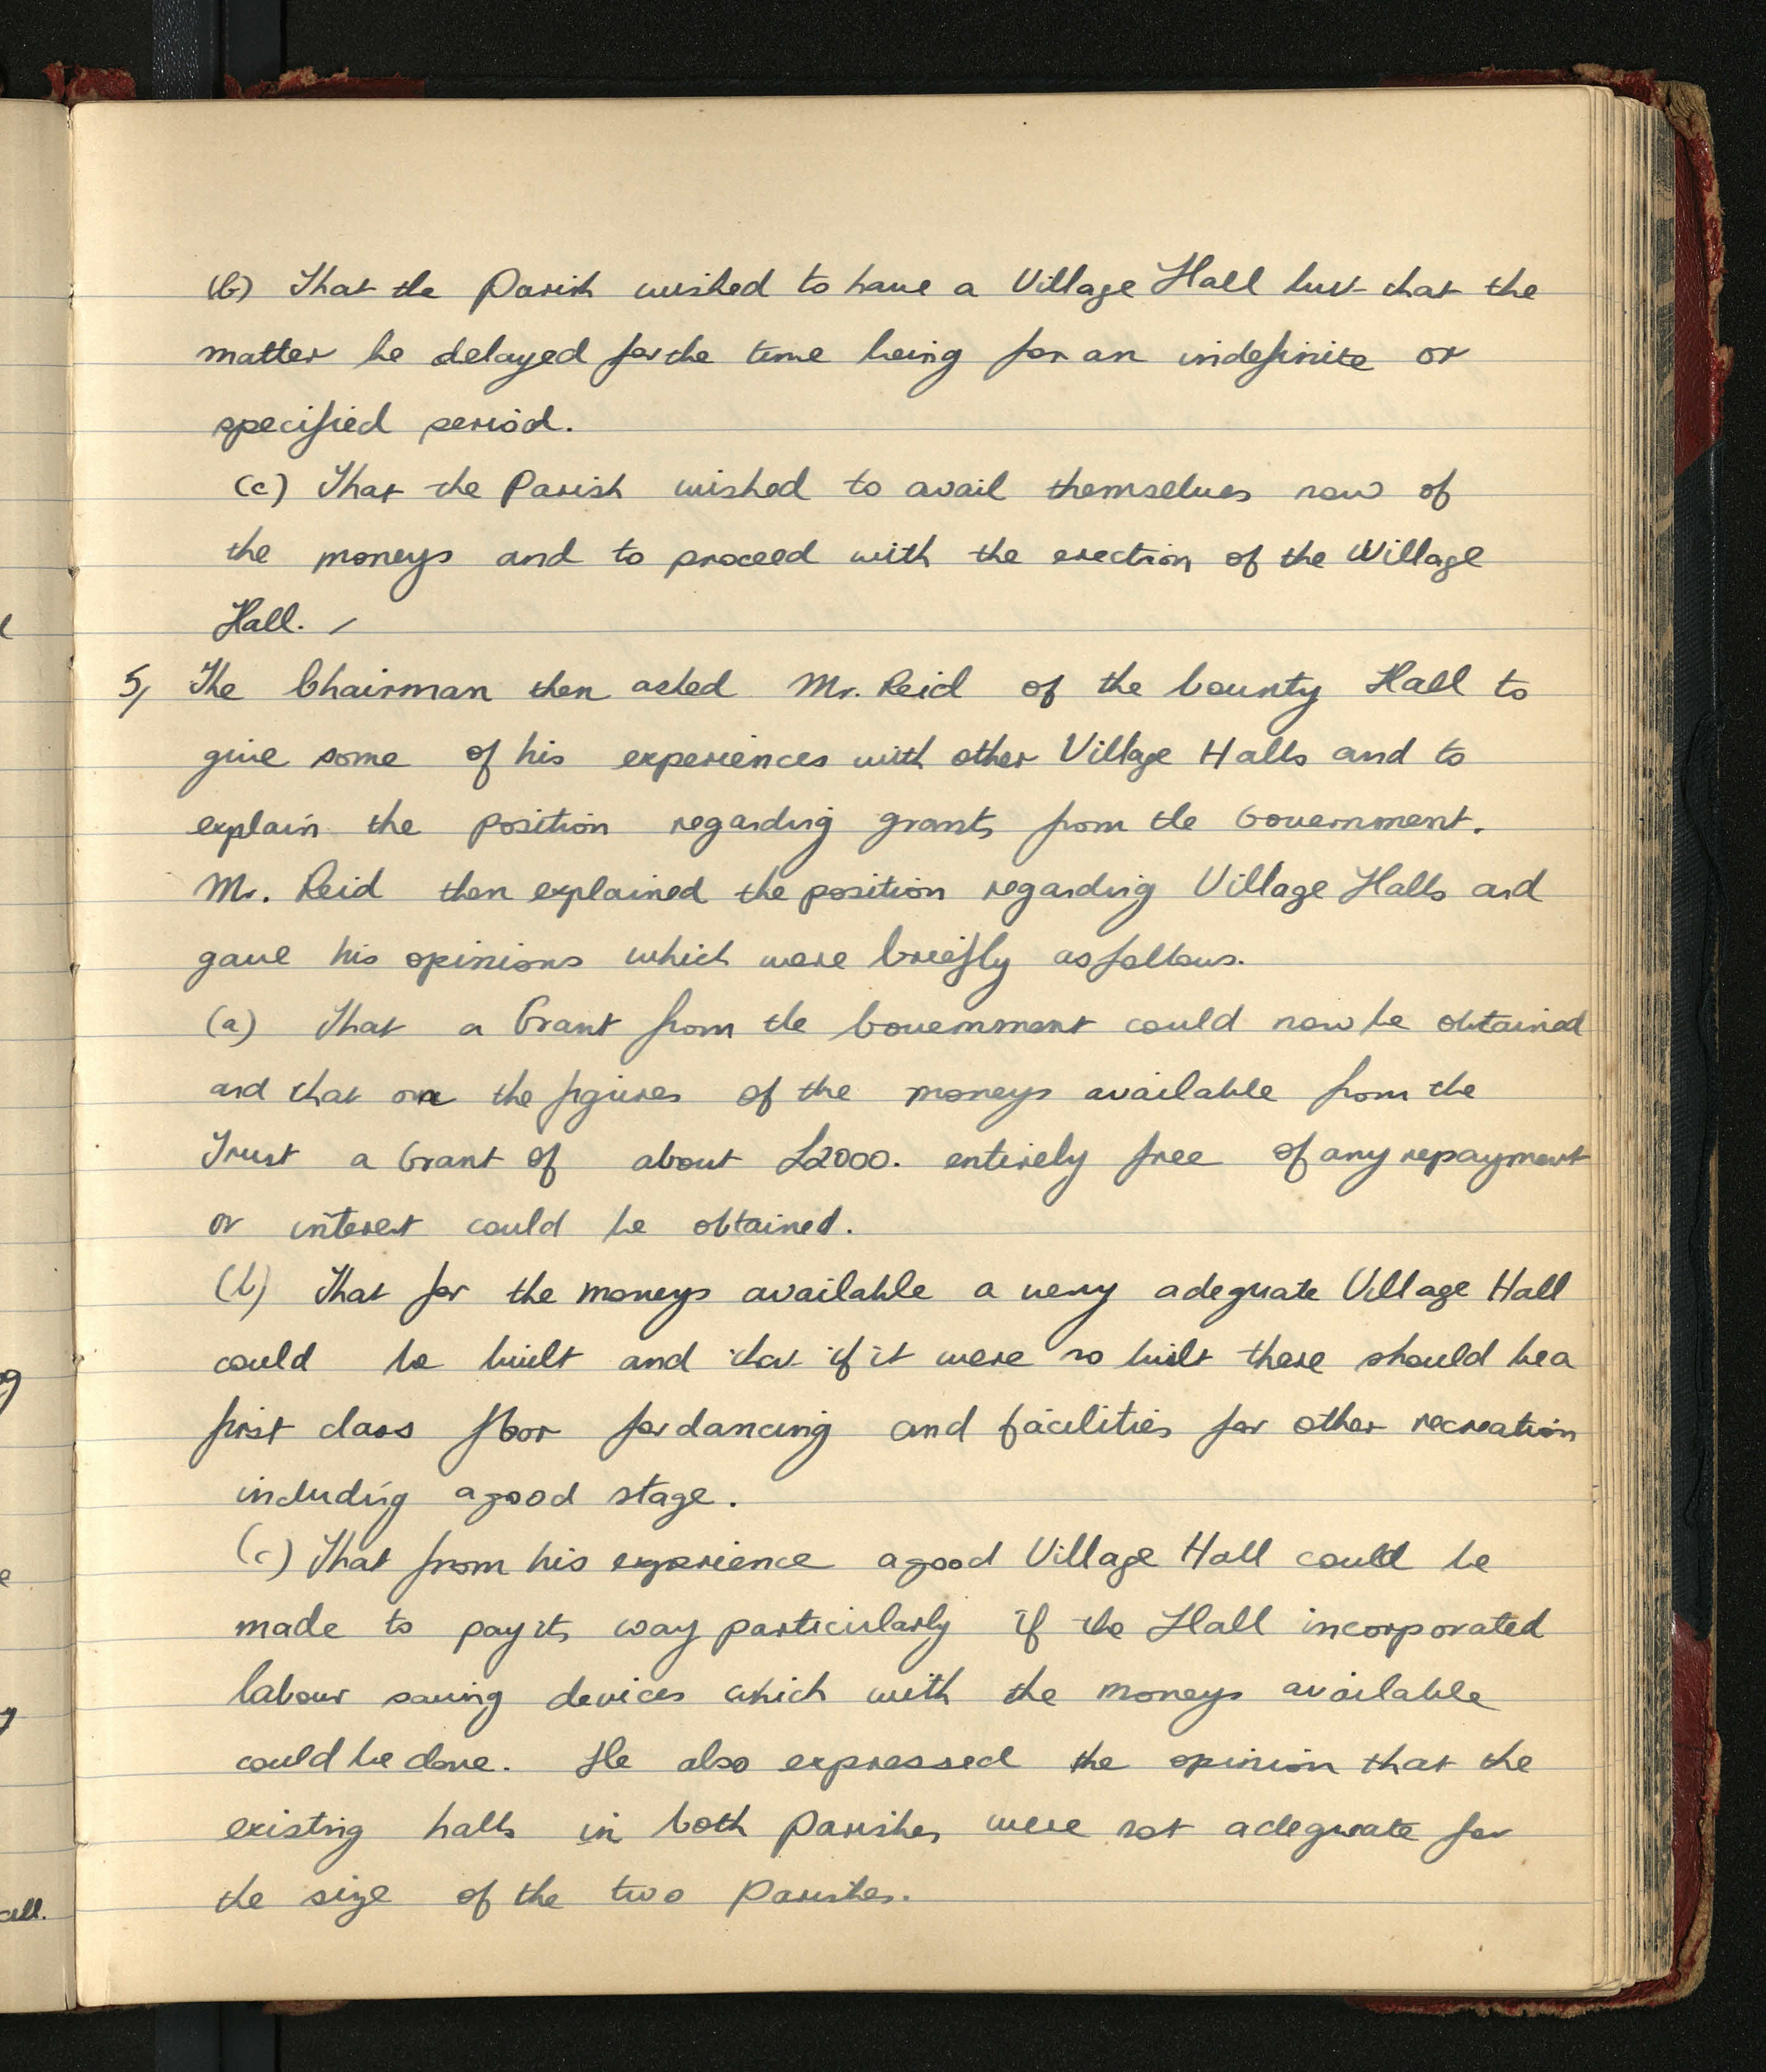 (b) That the Parish wished to have a Village Hall but that the
matter be delayed for the time being for an indefinite or
specified period.
(c) That the Parish wished to avail themselves now of
the moneys and to proceed with the erection of the Village
Hall. /
5, The Chairman then asked Mr. Reid of the County Hall to
give some of his experiences with other Village Halls and to
explain the position regarding grants from the Government.
Mr. Reid then explained the position regarding Village Halls and
gave his opinions which were briefly as follows.
(a) That a Grant from the Government could now be obtained
and that on the figures of the moneys available from the
Trust a Grant of about £2000. entirely free of any repayment
or interest could be obtained.
(b) That for the moneys available a very adequate Village Hall
could be built and that if it were so built there should be a
first class floor for dancing and facilities for other recreation
including a good stage.
(c) That from his experience a good Village Hall could be
made to pay its way particularly if the Hall incorporated
labour saving devices which with the moneys available
could be done. He also expressed the opinion that the
existing halls in both Parishes were not adequate for
the size of the two Parishes.